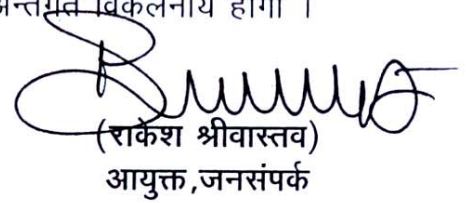 अन्तर्गत विकलनीय होगा ।
(राकेश श्रीवास्तव)
आयुक्त,जनसंपर्क